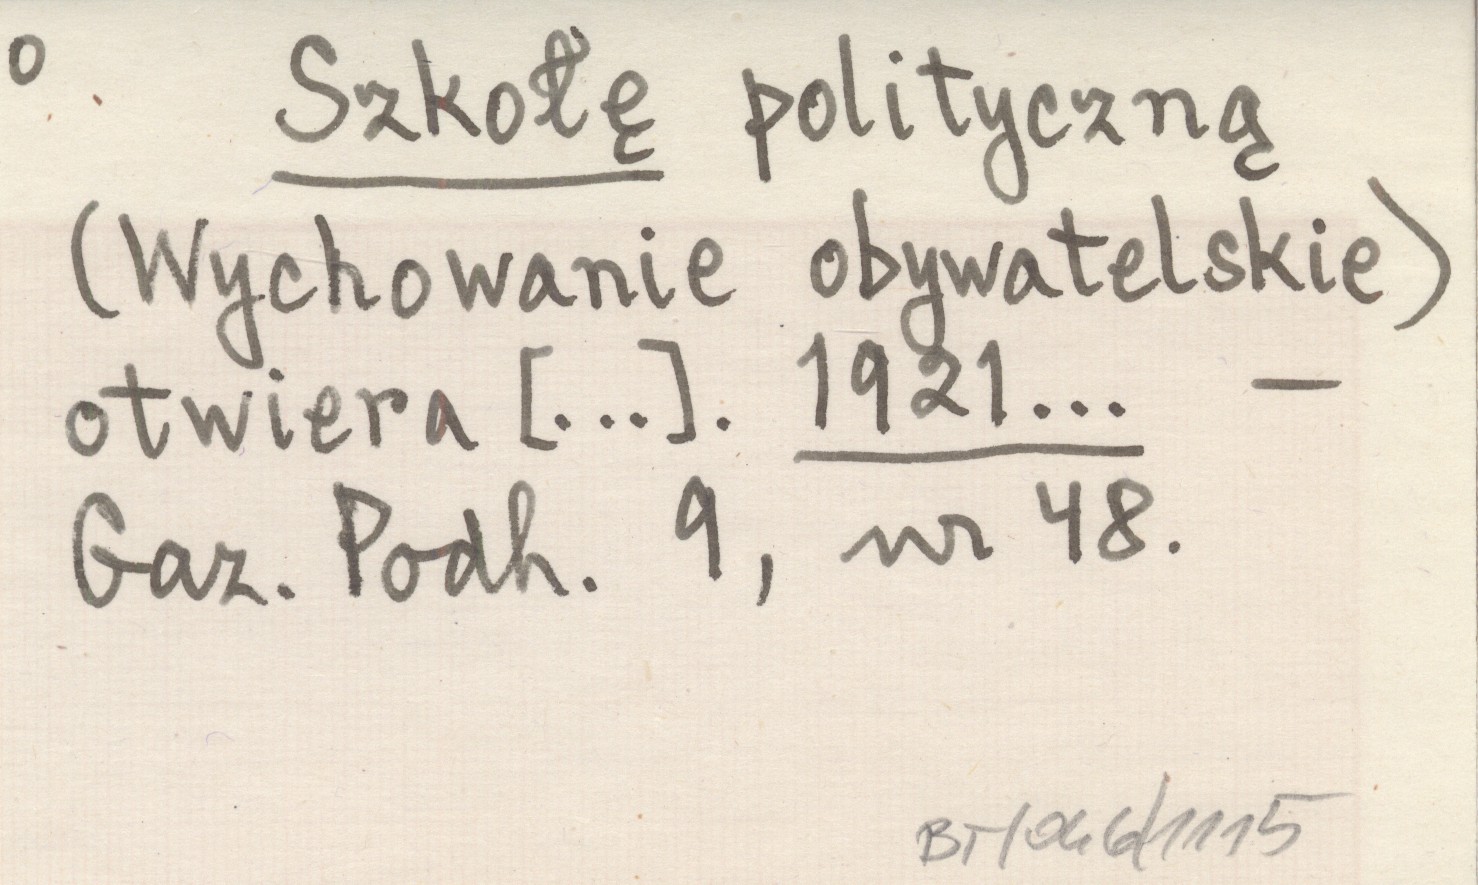 o Szkołę polityczną
(Wychowanie obywatelskie)
otwiera [...]. 1921... —
Gaz. Podh. 9, nr 48.
BT/046/1115